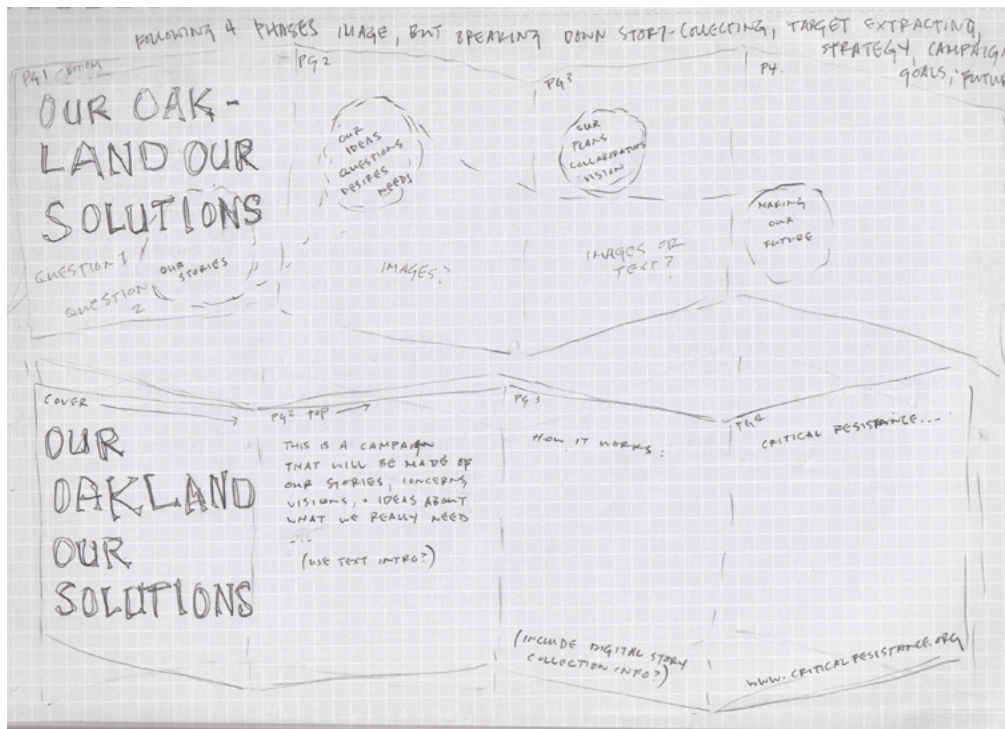 FOLLOWING 4 PHASES IMAGE, BUT BREAKING DOWN STORY-COLLECTING, TARGET EXTRACTING,
STRATEGY, CAMPAIGN
GOALS, FUTURE
PG 1
OUR OAK-
LAND OUR
SOLUTIONS
QUESTION 1
QUESTION
2
OUR
STORIES
PG 2
OUR
IDEAS
QUESTIONS
DESIRES
NEEDS
IMAGES?
PG 3
OUR
PLANS
COLLABORATORS
VISION
IMAGES OR
TEXT?
P4.
MAKING
OUR
FUTURE
COVER
OUR
OAKLAND
OUR
SOLUTIONS
PG 2 TOP
THIS IS A CAMPAIGN
THAT WILL BE MADE OF
OUR STORIES, CONCERNS
VISIONS, + IDEAS ABOUT
WHAT WE REALLY NEED
...
(USE TEXT INTRO?)
PG 3
HOW IT WORKS:
(INCLUDE DIGITAL STORY
COLLECTION INFO?)
CRITICAL RESISTANCE...
WWW.CRITICALRESISTANCE.ORG